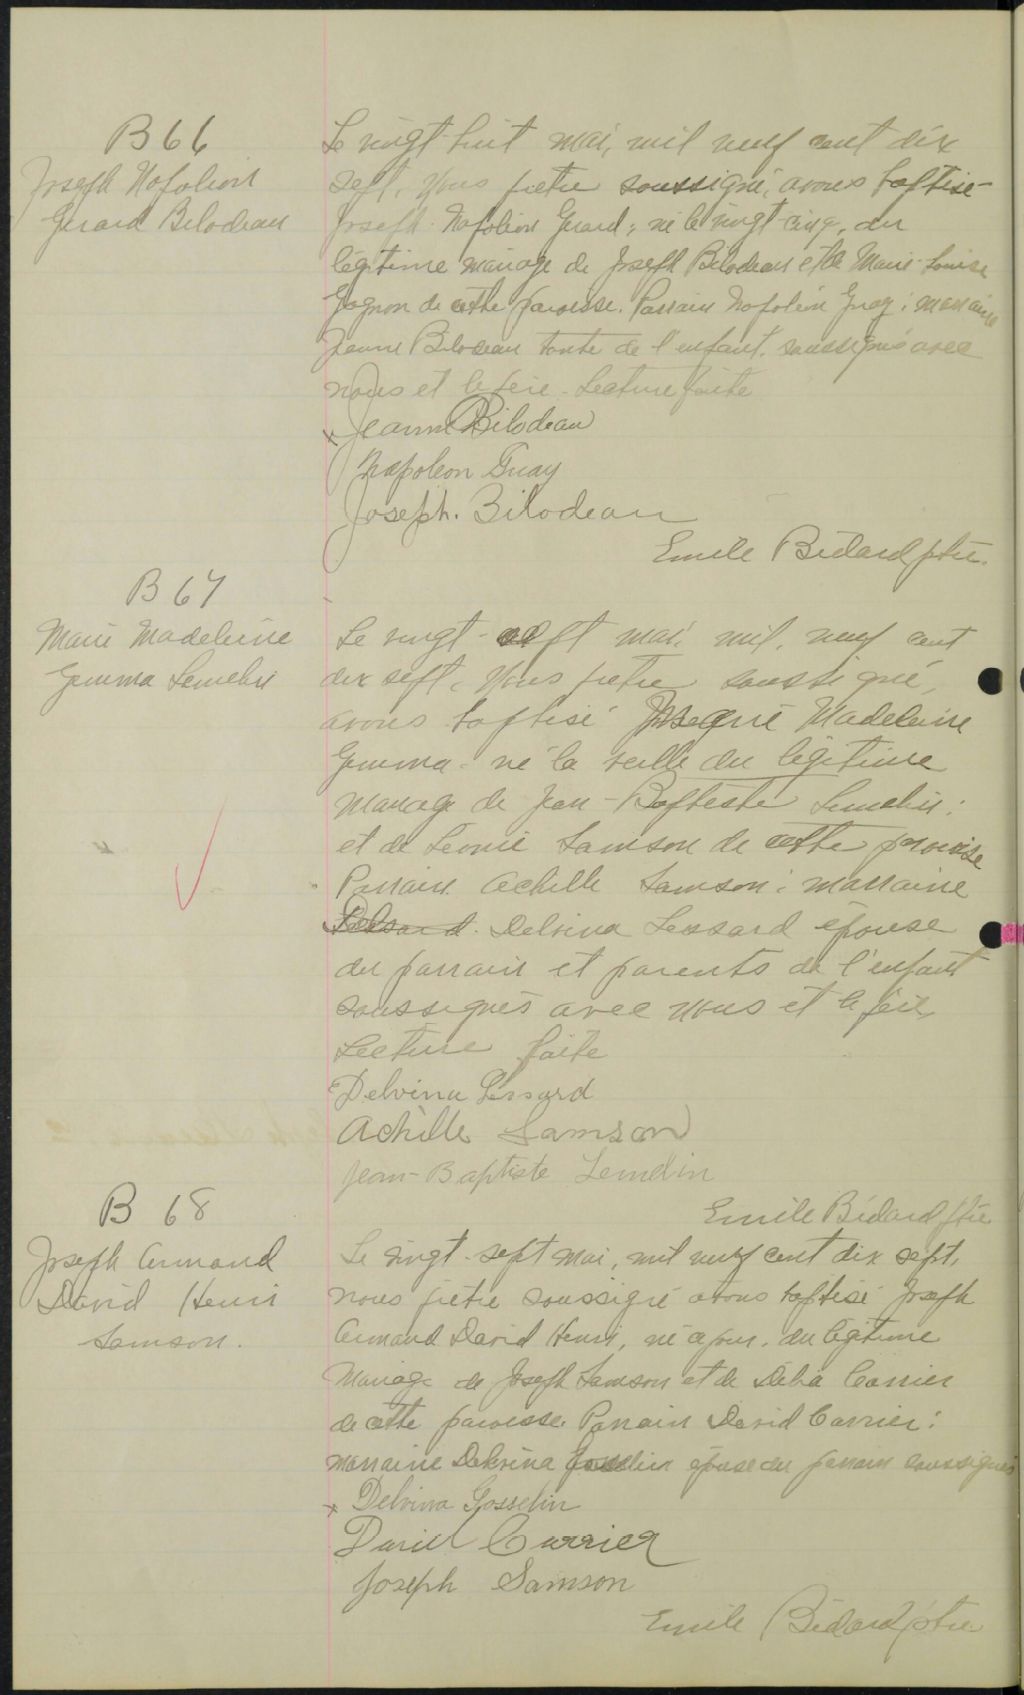 B 66
Joseph Napoléon
Gérard Bilodeau
Le vingt-huit mai, mil neuf cent dix
sept, Nous prêtre soussigné, avons baptisé
Joseph Napoléon Gérard, né le vingt-cinq, du
légitime mariage de Joseph Bilodeau et de Marie-Louise
Gagnon de cette paroisse. Parrain Napoléon Guay; marraine
Jeanne Bilodeau tante de l'enfant, soussignés avec
nous et le père. Lecture faite
x Jeanne Bilodeau
Napoléon Guay
Joseph. Bilodeau
Emile Bédard ptre.
B 67
Marie Madeleine
Gemma Lemelin
Le vingt-sept mai, mil, neuf cent
dix sept, Nous prêtre soussigné,
avons baptisé Madeleine
Gemma - né la veille du légitime
mariage de Jean-Baptiste Lemelin:
et de Léonie Samson de cette paroisse
Parrain Achille Samson; marraine
Delvina Lessard épouse
du parrain et parents de l'enfant
soussignés avec nous et le père,
Lecture faite
Delvina Lessard
Achille Samson
Jean-Baptiste Lemelin
Emile Bédard ptre
B 68
Joseph Armand
David Henri
Samson.
Le vingt-sept mai, mil neuf cent dix sept,
nous prêtre soussigné avons baptisé Joseph
Armand David Henri, né ce jour, du légitime
Mariage de Joseph Samson et de Délia Carrier
de cette paroisse. Parrain David Carrier:
marraine Delvina Gosselin épouse du parrain soussignés
x Delvina Gosselin
David Carrier
Joseph Samson
Emile Bédard ptre